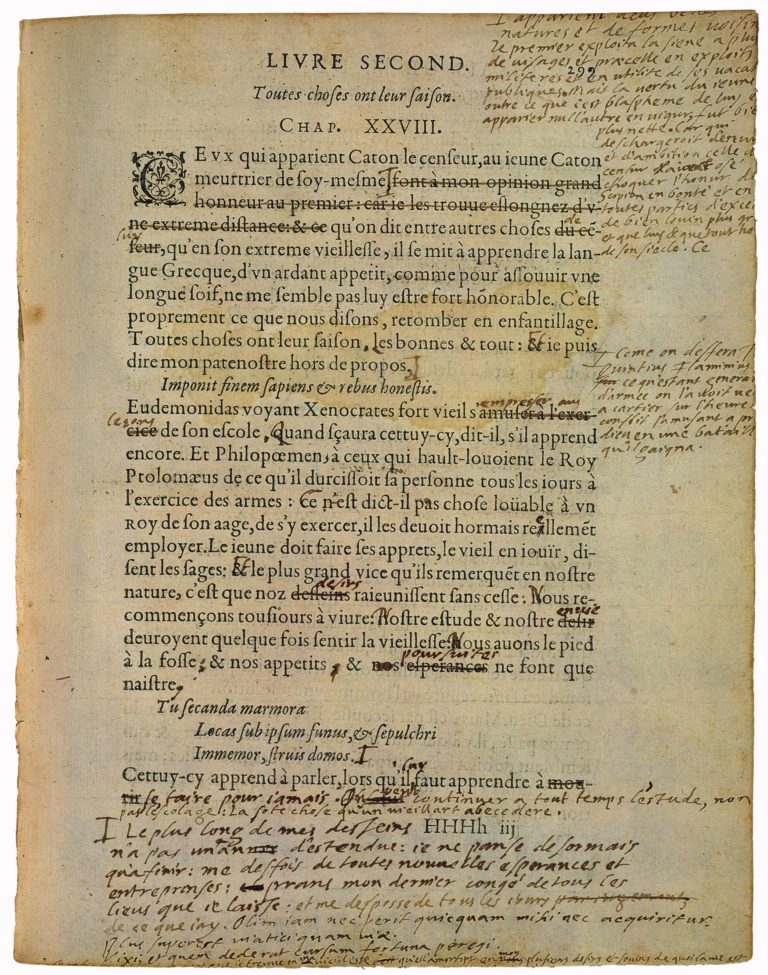 LIVRE SECOND.
299
Toutes choses ont leur saison.
CHAP. XXVIII.
CEVX qui apparient Caton le censeur, au ieune Caton
meurtrier de soy-mesme font à mon opinion grand
honneur au premier: car ie les trouue eslongnez d'v-
ne extreme distance: & ce qu'on dit entre autres choses du cē-
seur, qu'en son extreme vieillesse, il se mit à apprendre la lan-
gue Grecque, d'vn ardant appetit, comme pour assouuir vne
longue soif, ne me semble pas luy estre fort hōnorable. C'est
proprement ce que nous disons, retomber en enfantillage.
Toutes choses ont leur saison, les bonnes & tout: Et ie puis
dire mon patenostre hors de propos,
Imponit finem sapiens & rebus honestis.
Eudemonidas voyant Xenocrates fort vieil s'amuser à l'exer-
cice de son escole, Quand sçaura cettuy-cy, dit-il, s'il apprend
encore. Et Philopœmen, à ceux qui hault-louoient le Roy
Ptolomæus de ce qu'il durcissoit sa personne tous les iours à
l'exercice des armes: Ce n'est dict-il pas chose loüable à vn
ROY de son aage, de s'y exercer, il les deuoit hormais reellemēt
employer. Le ieune doit faire ses apprets, le vieil en iouïr, di-
sent les sages: Et le plus grand vice qu'ils remerquēt en nostre
nature, c'est que noz desseins raieunissent sans cesse: Nous re-
commençons tousiours à viure: Nostre estude & nostre desir
deuroyent quelque fois sentir la vieillesse: Nous auons le pied
à la fosse; & nos appetits, & nos esperances ne font que
naistre,
Tu secanda marmora
Locas sub ipsum funus, & sepulchri
Immemor, struis domos.
Cettuy-cy apprend à parler, lors qu'il faut apprendre à mou-
rir
HHHh iij
natures et de formes
le premier exploita la siene a plus
de visages et præcelle en exploits
militeres et en utilité de ses vacat
publiques. Mais la vertu du ieune
outre ce que c'est blaspheme de luy
apparier null'autre en vigur, fut bie
plus nette. Car qui
deschargeroit d'envie
et d'ambition celle
censur aïant osé
choquer l'honur de
Scipion en bonté et en
toutes parties d'exce
de bien louin plus gr
et que luy & que tout ho
de son siecle. Ce
de
sur
Come on dessera
Quintius Flaminius
ce qu'estant general
d'armee on l'avoit ve
a cartier sur l'heure
conflit s'amusant a pr
dieu en une bataill
qu'il gaigna.
empresser aus
leçons
desirs
envie
poursuites
se taire pour iamais. continuer a tout temps l'estude, non
pas l'escolage: La sote chose qu'un vieillart abecedere.
Le plus long de mes desseins
n'a pas un an d'estendue: ie ne panse desormais
qu'a finir: me desfois de toutes nouvelles esperances et
entreprinses: prans mon dernier congé de tous les
lieus que ie laisse: et me depossede tous les iours
de ce que iay. Olim iam nec perit quicquam mihi nec acquiritur.
plus superest viatici quam viæ.
Vixi, et quem dederat cursum fortuna peregi.